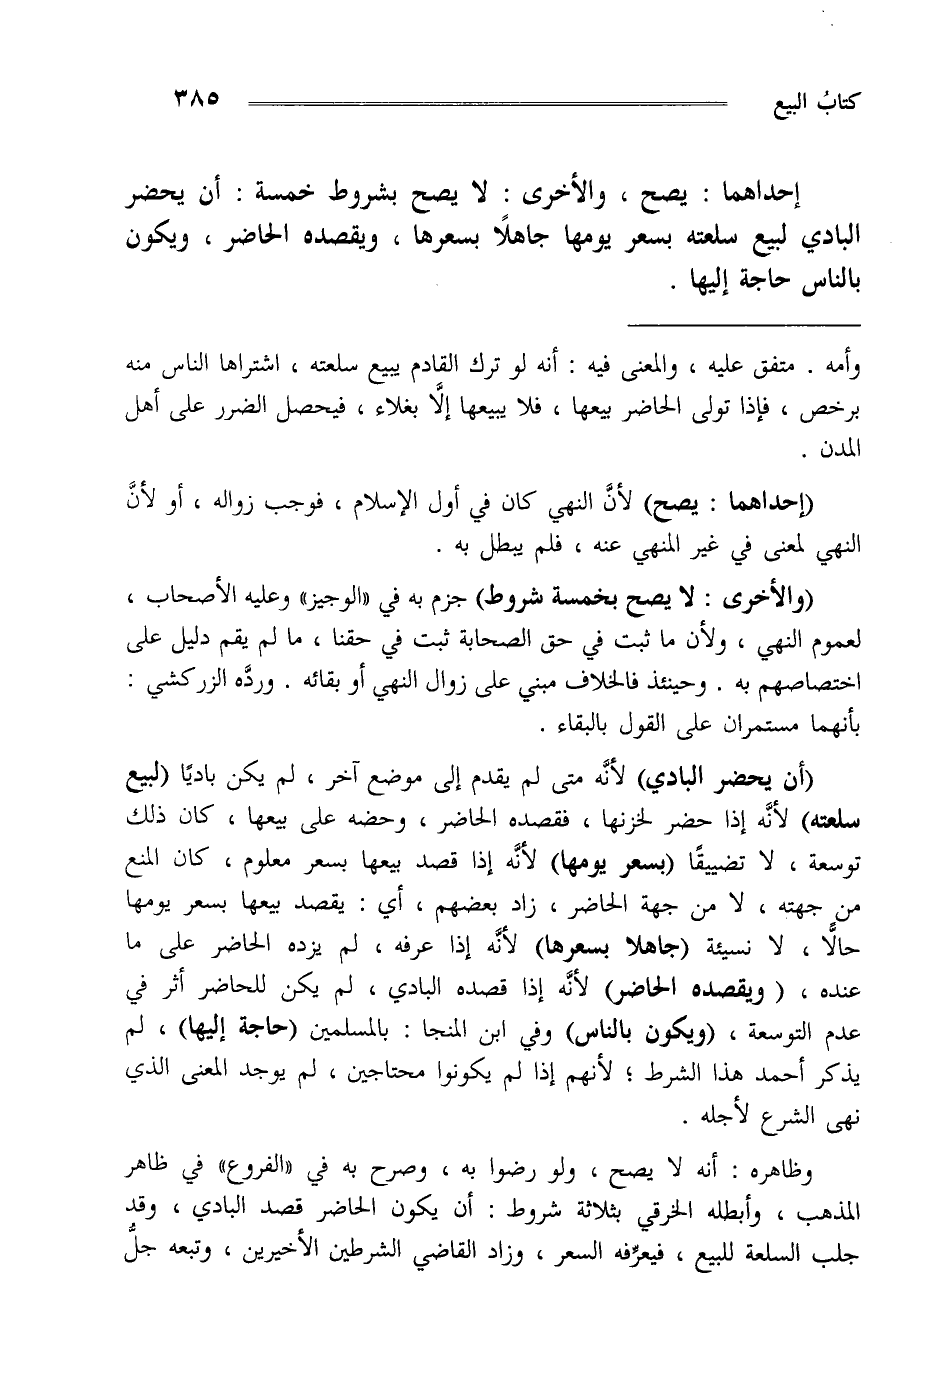 كتابُ البيع ٣٨٥
إحداهما : يصح ، والأخرى : لا يصح بشروط خمسة : أن يحضر
البادي لبيع سلعته بسعر يومها جاهلًا بسعرها ، ويقصده الحاضر ، ويكون
بالناس حاجة إليها .
وأمه . متفق عليه ، والمعنى فيه : أنه لو ترك القادم يبيع سلعته ، اشتراها الناس منه
برخص ، فإذا تولى الحاضر بيعها ، فلا يبيعها إلَّا بغلاء ، فيحصل الضرر على أهل
المدن .
(إحداهما : يصح) لأنَّ النهي كان في أول الإسلام ، فوجب زواله ، أو لأنَّ
النهي لمعنى في غير المنهي عنه ، فلم يبطل به .
(والأخرى : لا يصح بخمسة شروط) جزم به في «الوجيز» وعليه الأصحاب ،
لعموم النهي ، ولأن ما ثبت في حق الصحابة ثبت في حقنا ، ما لم يقم دليل على
اختصاصهم به . وحينئذ فالخلاف مبني على زوال النهي أو بقائه . وردَّه الزركشي :
بأنهما مستمران على القول بالبقاء .
(أن يحضر البادي) لأنَّه متى لم يقدم إلى موضع آخر ، لم يكن باديًا (لبيع
سلعته) لأنَّه إذا حضر لخزنها ، فقصده الحاضر ، وحضه على بيعها ، كان ذلك
توسعة ، لا تضييقًا (بسعر يومها) لأنَّه إذا قصد بيعها بسعر معلوم ، كان المنع
من جهته ، لا من جهة الحاضر ، زاد بعضهم ، أي : يقصد بيعها بسعر يومها
حالًّا ، لا نسيئة (جاهلا بسعرها) لأنَّه إذا عرفه ، لم يزده الحاضر على ما
عنده ، ( ويقصده الحاضر) لأنَّه إذا قصده البادي ، لم يكن للحاضر أثر في
عدم التوسعة ، (ويكون بالناس) وفي ابن المنجا : بالمسلمين (حاجة إليها) ، لم
يذكر أحمد هذا الشرط ؛ لأنهم إذا لم يكونوا محتاجين ، لم يوجد المعنى الذي
نهى الشرع لأجله .
وظاهره : أنه لا يصح ، ولو رضوا به ، وصرح به في «الفروع» في ظاهر
المذهب ، وأبطله الخرقي بثلاثة شروط : أن يكون الحاضر قصد البادي ، وقد
جلب السلعة للبيع ، فيعرِّفه السعر ، وزاد القاضي الشرطين الأخيرين ، وتبعه جلُّ